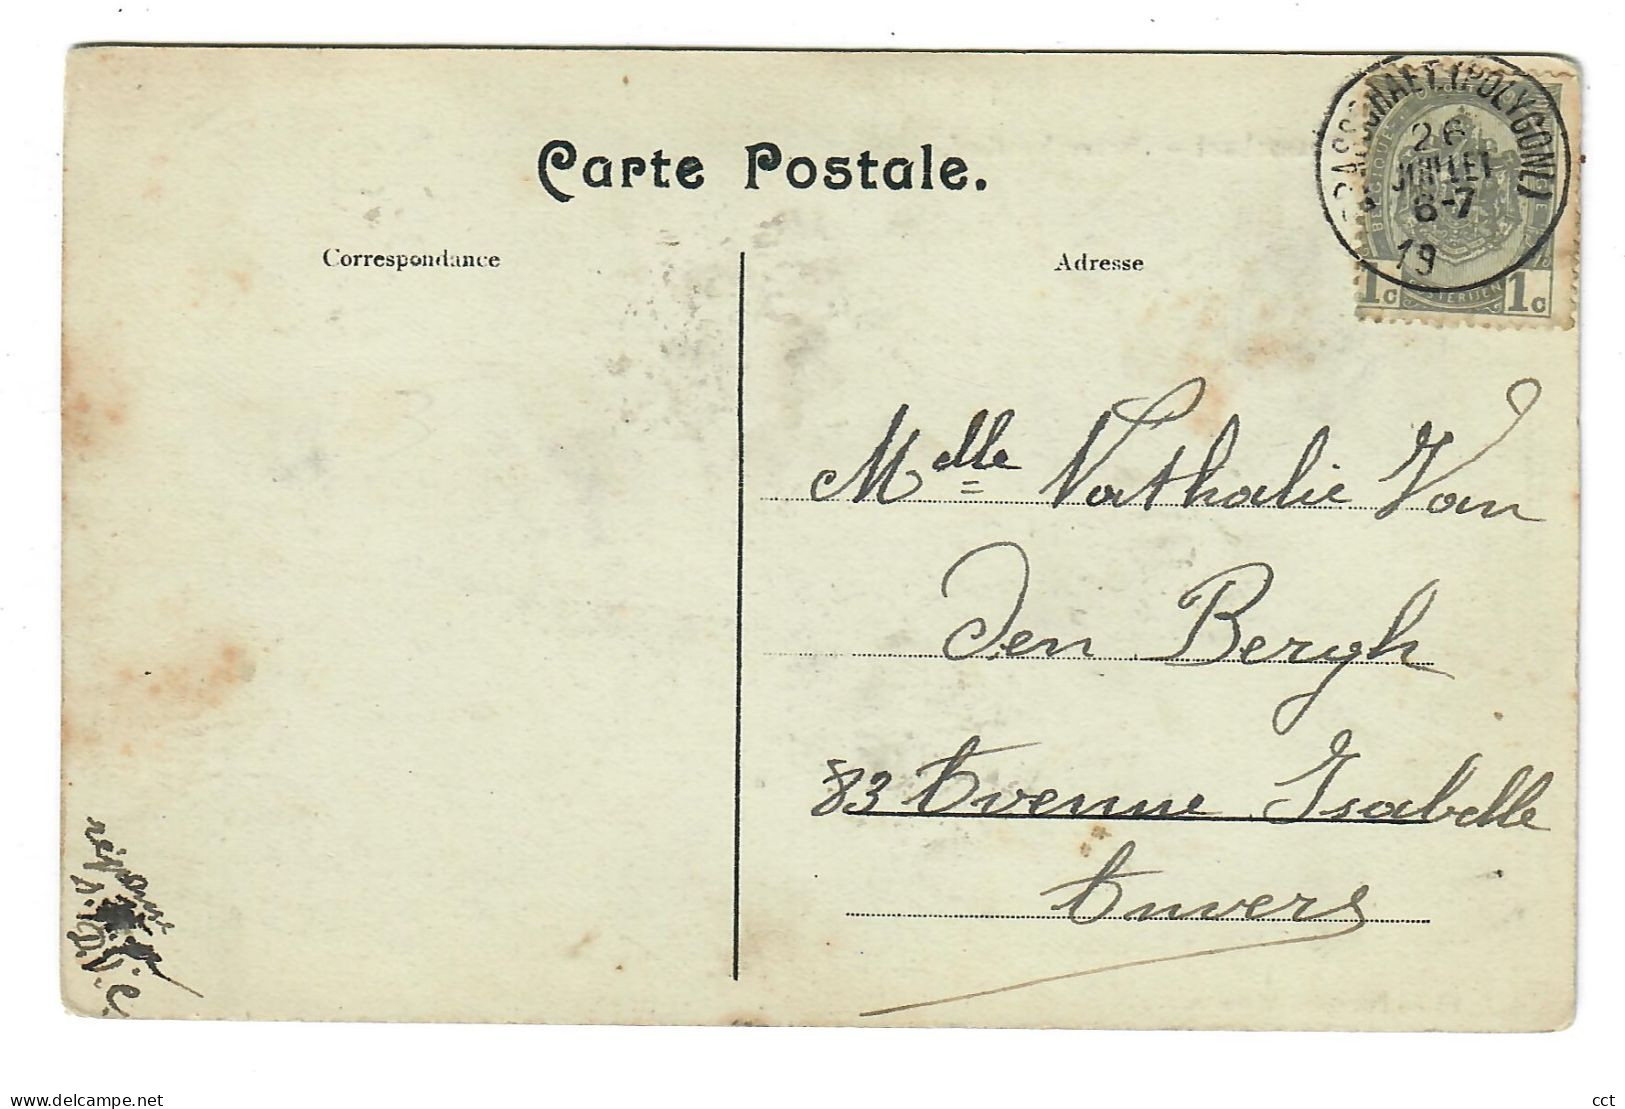 Carte Postale.
Correspondance
Adresse
BRASSCHAET. (POLYGONE)
26
JUILLET
6-7
19
BELGIQUE
1c 1c
Mdlle Nathalie Van
den Bergh
83 Avenue Isabelle
Anvers
réponse
delcampe.net
cct